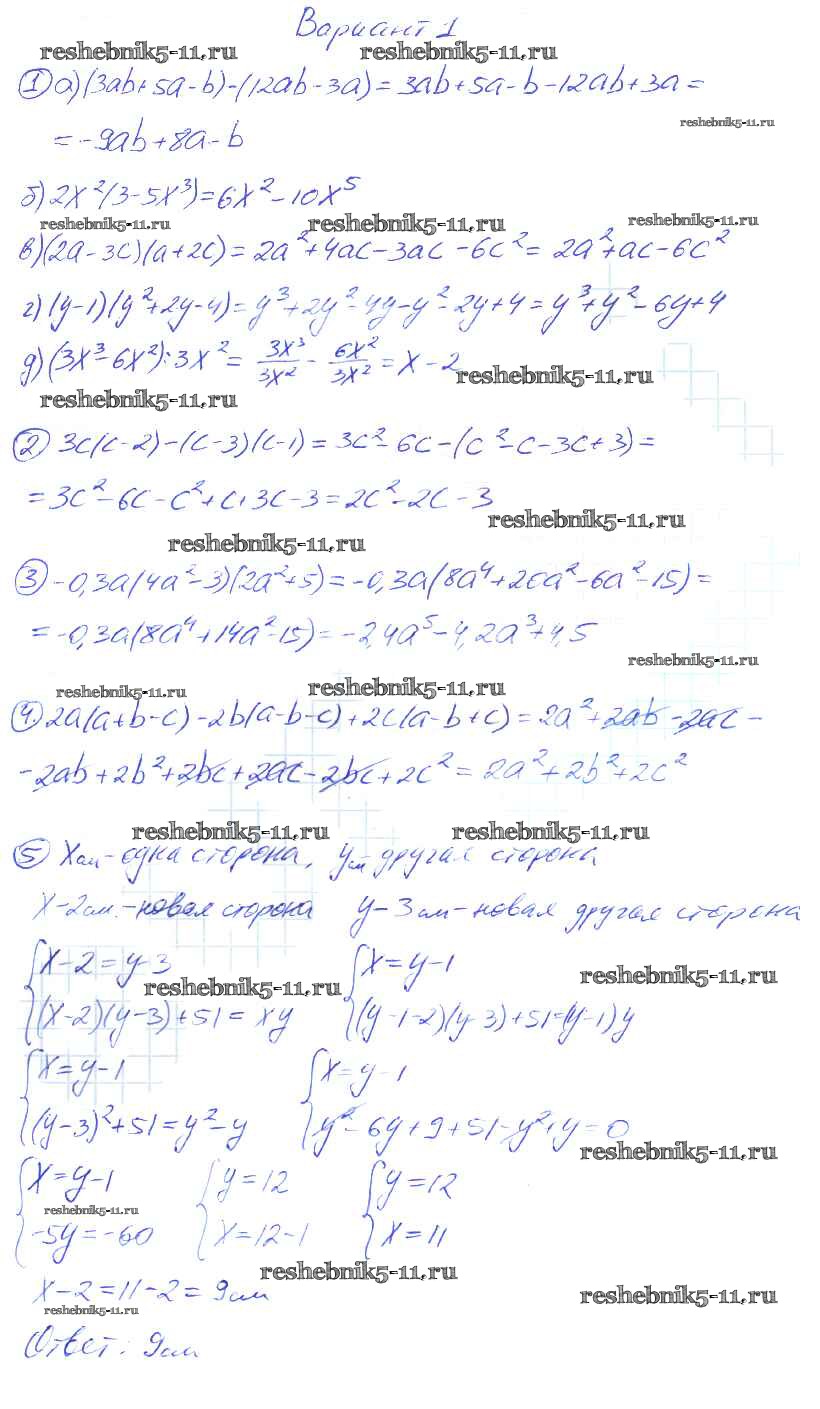 Вариант 1
reshebnik5-11.ru reshebnik5-11.ru
① а) (3ab+5a-b)-(12ab-3a)=3ab+5a-b-12ab+3a=
reshebnik5-11.ru
=-9ab+8a-b
б) 2x²(3-5x³)=6x²-10x⁵
reshebnik5-11.ru reshebnik5-11.ru reshebnik5-11.ru
в) (2a-3c)(a+2c)=2a²+4ac-3ac-6c²=2a²+ac-6c²
г) (y-1)(y²+2y-4)=y³+2y²-4y-y²-2y+4=y³+y²-6y+4
д) (3x³-6x²):3x²=3x³/3x²-6x²/3x²=x-2
reshebnik5-11.ru
reshebnik5-11.ru
② 3c(c-2)-(c-3)(c-1)=3c²-6c-(c²-c-3c+3)=
=3c²-6c-c²+c+3c-3=2c²-2c-3
reshebnik5-11.ru
reshebnik5-11.ru
③ -0,3a(4a²-3)(2a²+5)=-0,3a(8a⁴+20a²-6a²-15)=
=-0,3a(8a⁴+14a²-15)=-2,4a⁵-4,2a³+4,5
reshebnik5-11.ru
reshebnik5-11.ru reshebnik5-11.ru
④ 2a(a+b-c)-2b(a-b-c)+2c(a-b+c)=2a²+2ab-2ac-
-2ab+2b²+2bc+2ac-2bc+2c²=2a²+2b²+2c²
reshebnik5-11.ru reshebnik5-11.ru
⑤ x см-одна сторона, y см другая сторона
x-2 см.-новая сторона y-3 см-новая другая сторона
{x-2=y-3 {x=y-1
reshebnik5-11.ru reshebnik5-11.ru
(x-2)(y-3)+51=xy (y-1-2)(y-3)+51=(y-1)y
{x=y-1 {x=y-1
(y-3)²+51=y²-y y²-6y+9+51-y²+y=0
reshebnik5-11.ru
{x=y-1 {y=12 {y=12
reshebnik5-11.ru
-5y=-60 x=12-1 x=11
reshebnik5-11.ru
x-2=11-2=9 см
reshebnik5-11.ru reshebnik5-11.ru
Ответ: 9 см